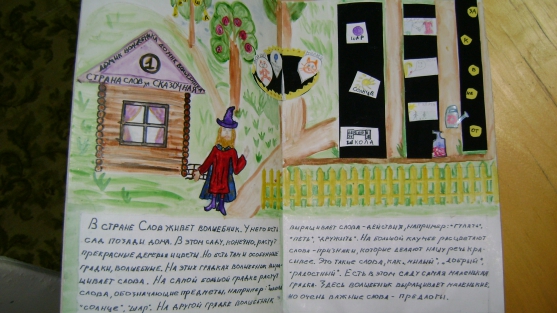 ДОМИК ВОЛШЕБНИКА
1
СТРАНА СЛОВ УЛ СКАЗОЧНАЯ
ШАР
СОЛНЦЕ
ШКОЛА
ОТ
В СТРАНЕ СЛОВ ЖИВЕТ ВОЛШЕБНИК. У НЕГО ЕСТЬ
САД ПОЗАДИ ДОМА. В ЭТОМ САДУ, КОНЕЧНО, РАСТУТ
ПРЕКРАСНЫЕ ДЕРЕВЬЯ И ЦВЕТЫ. НО ЕСТЬ ТАМ И ОСОБЕННЫЕ
ГРЯДКИ, ВОЛШЕБНЫЕ. НА ЭТИХ ГРЯДКАХ ВОЛШЕБНИК ВЫРА-
ЩИВАЕТ СЛОВА. НА САМОЙ БОЛЬШОЙ ГРЯДКЕ РАСТУТ
СЛОВА, ОБОЗНАЧАЮЩИЕ ПРЕДМЕТЫ, НАПРИМЕР: "ШКОЛА"
"СОЛНЦЕ", "ШАР". НА ДРУГОЙ ГРЯДКЕ ВОЛШЕБНИК
ВЫРАЩИВАЕТ СЛОВА-ДЕЙСТВИЯ, НАПРИМЕР:
"ПЕТЬ", "ДРУЖИТЬ". НА БОЛЬШОЙ КЛУМБЕ РАСЦВЕТАЮТ
СЛОВА-ПРИЗНАКИ, КОТОРЫЕ ДЕЛАЮТ НАШУ РЕЧЬ КРА-
СИВЕЕ. ЭТО ТАКИЕ СЛОВА, КАК "МИЛЫЙ", "ДОБРЫЙ",
"РАДОСТНЫЙ". ЕСТЬ В ЭТОМ САДУ САМАЯ МАЛЕНЬКАЯ
ГРЯДКА. ЗДЕСЬ ВОЛШЕБНИК ВЫРАЩИВАЕТ МАЛЕНЬКИЕ,
НО ОЧЕНЬ ВАЖНЫЕ СЛОВА - ПРЕДЛОГИ.